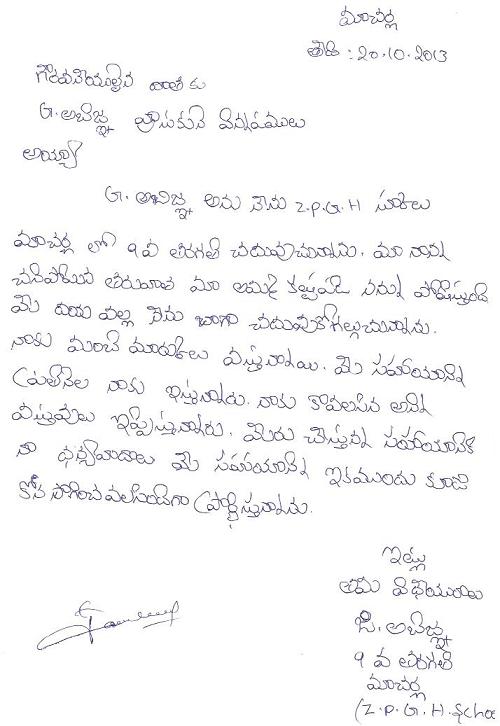 మాచర్ల
తేది : 20.10.2013
గౌరవనీయులైన దాతకు
G. అభిజ్ఞ వ్రాసుకునే విన్నపములు
అయ్యా
G. అభిజ్ఞ అను నేను Z.P.G.H స్కూలు
మాచర్ల లో 9 వ తరగతి చదువుచున్నాను. మా నాన్న
చనిపోయిన తరువాత మా అమ్మ కష్టపడి నన్ను పోషిస్తుంది
మీ దయ వల్ల నేను బాగా చదువుకోగల్గుచున్నాను.
నాకు మంచి మార్కులు వస్తున్నాయి. మీ సహాయాన్ని
ప్రతినెల నాకు ఇస్తున్నారు. నాకు కావలసిన అన్ని
వస్తువులు ఇప్పిస్తున్నారు. మీరు చేస్తున్న సహాయానికి
నా ధన్యవాదాలు మీ సహాయాన్ని ఇకముందు కూడా
కొన సాగించ వలసిందిగా ప్రార్థిస్తున్నాను.
ఇట్లు
తమ విధేయురాలు
జి. అభిజ్ఞ
9 వ తరగతి
మాచర్ల
(Z.P.G.H. Schoo